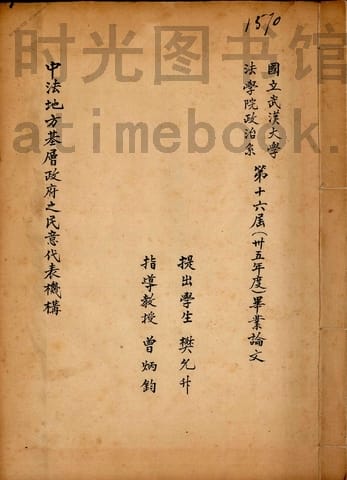 1570
國立武漢大學
法學院政治系
第十六屆(卅五年度)畢業論文
提出學生 樊允升
指導教授 曾炳鈞
中法地方基層政府之民意代表機構
时光图书馆
atimebook.c